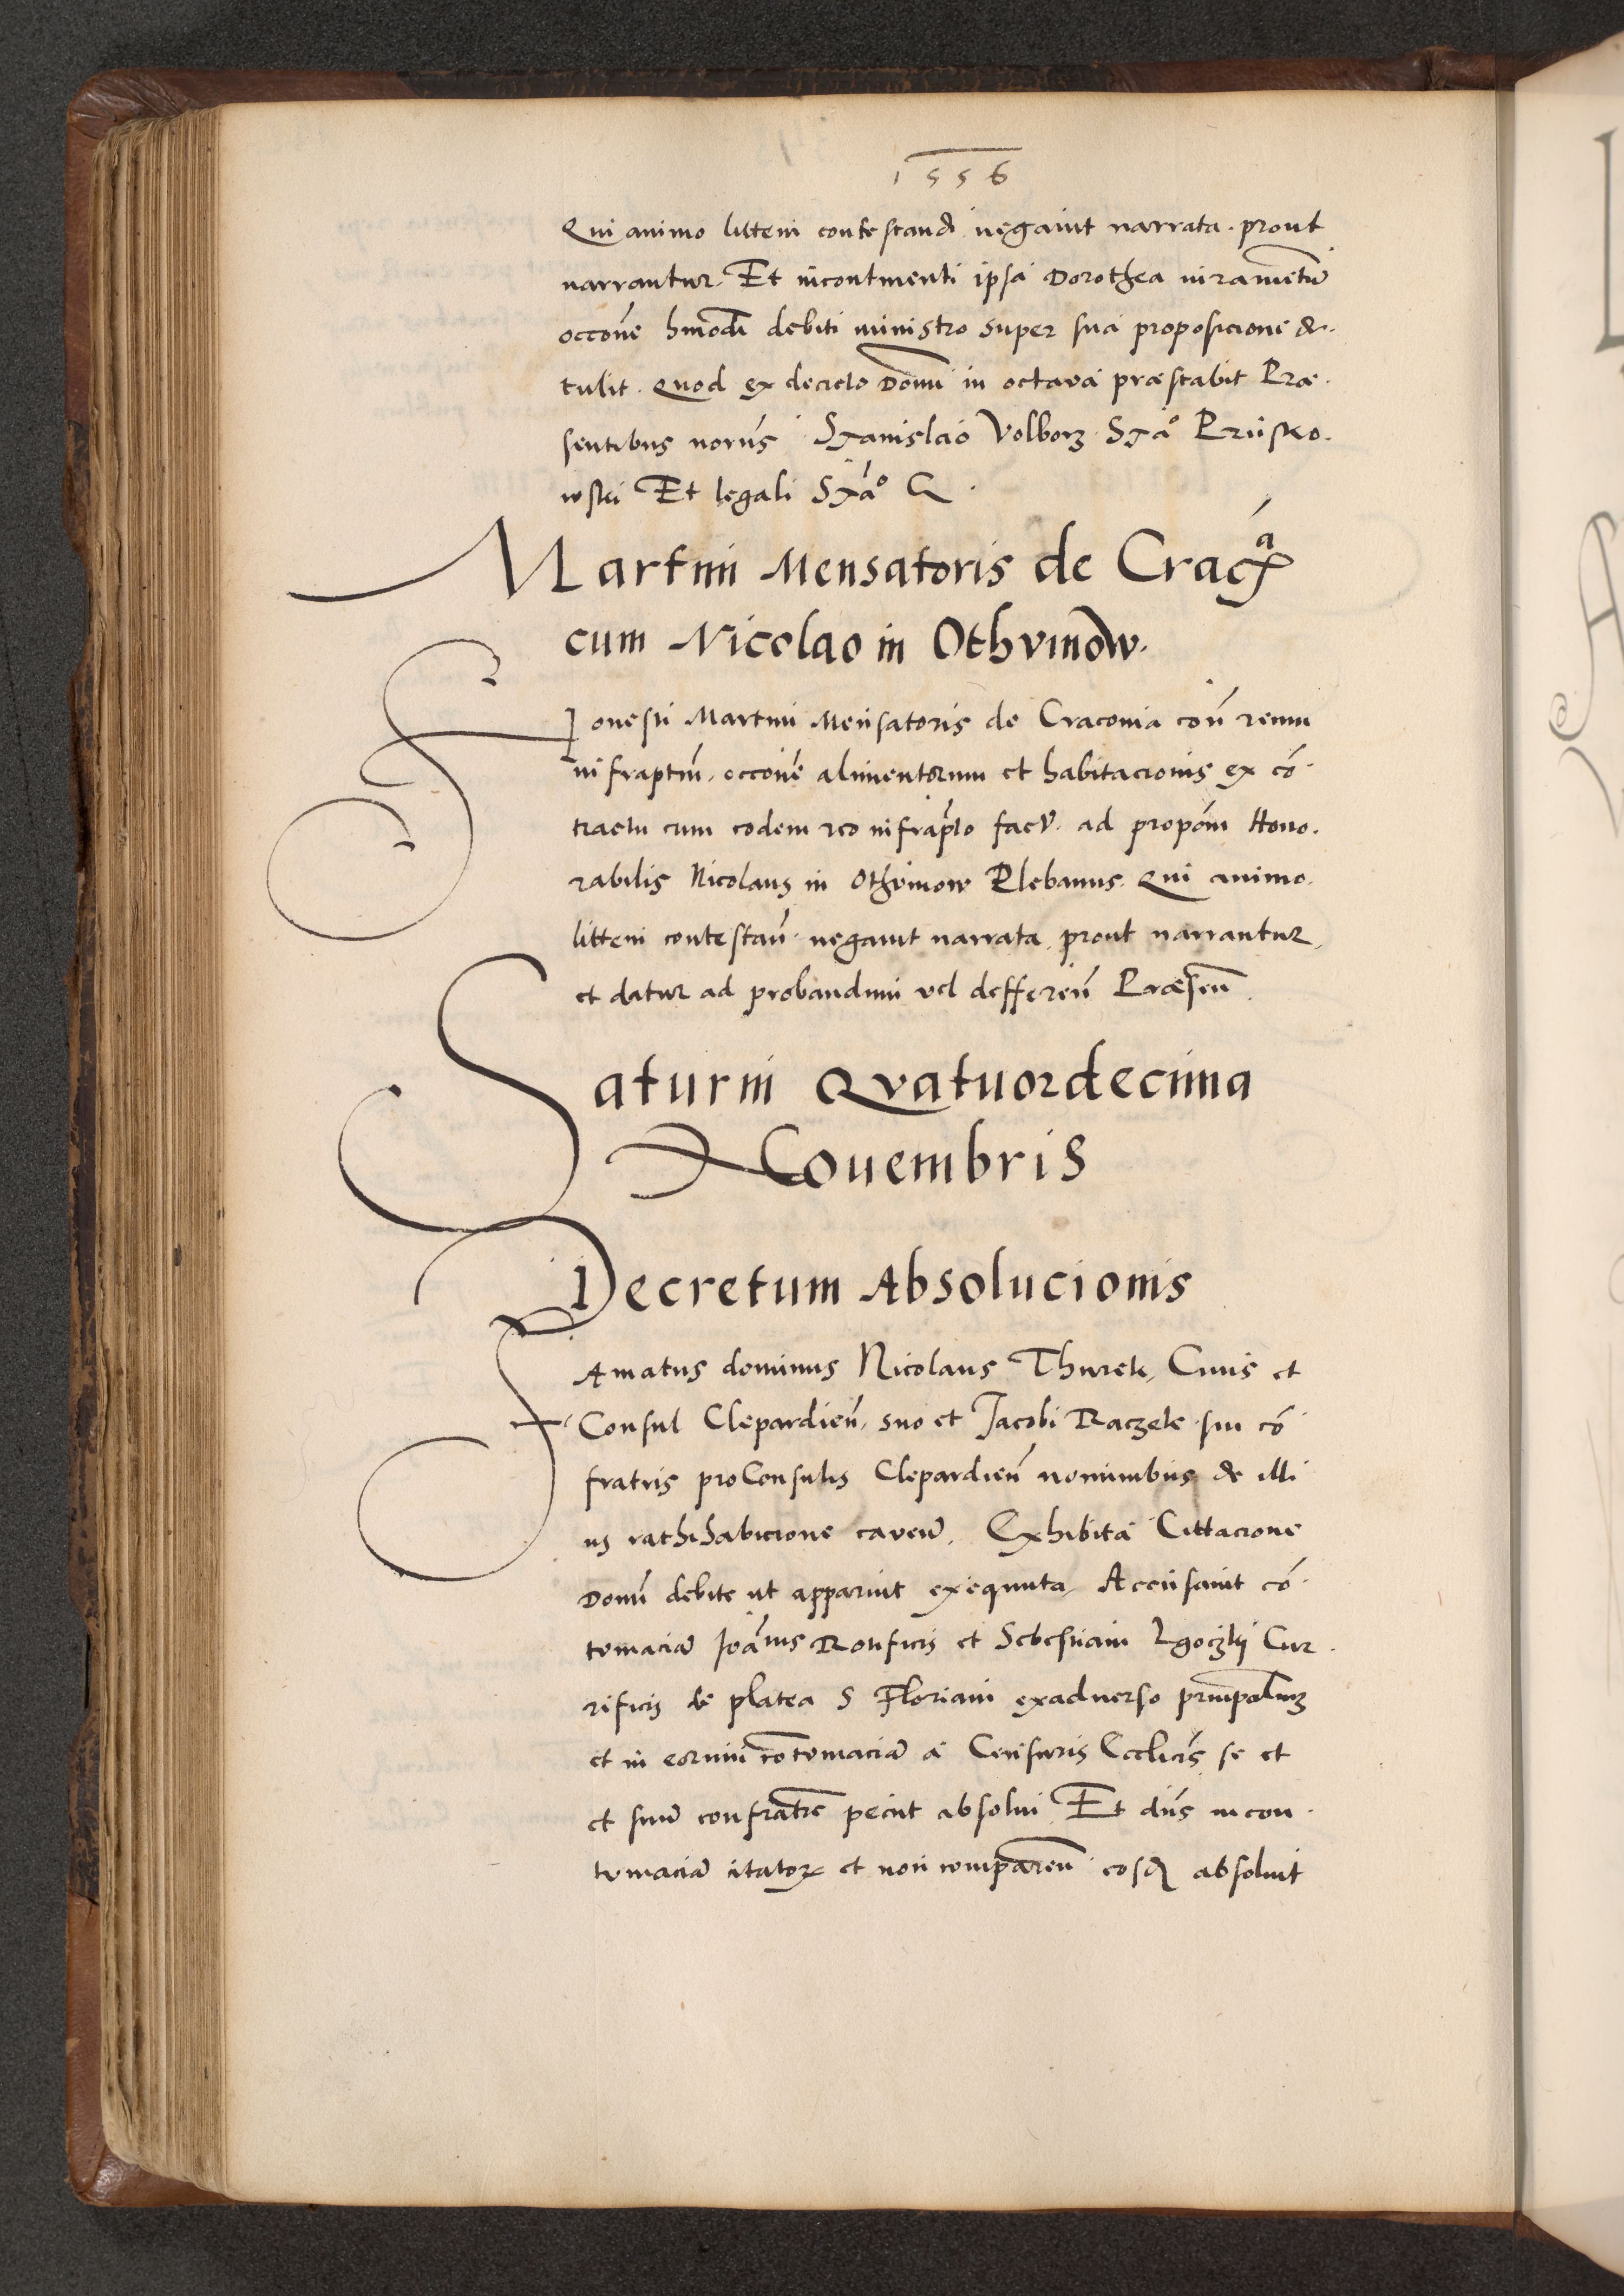 1556
Qui animo littem contestand negauit narrata. prout
narrantur. Et incontinenti ipsa Dorothea iuramētū
occōne hmōdi debiti ministro super sua proposicione de.
tulit. Quod ex decreto Domi in octava præstabit Præ.
sentibus
wski Et legali
Martini Mensatoris de Crac
cum Nicolao in Othvinow.
Honesti Martini Mensatoris de Craconia coñ reum
infraptm̄. occōne alimentorum et habitacionis ex cō.
tractu cum eodem reo infrapto fact. ad propōm Hono.
rabilis Nicolaus in Othvinow Plebanus. Qui animo.
littem contestañ. negauit narrata, prout narrantur,
et datur ad probandum vel defferen̄ Præsen̄
Saturni Qvatuordecima
Novembris
Decretum Absolucionis
Famatus dominus Nicolaus Thurek, Ciuis et
Consul Clepardien̄. suo et Jacobi Raczek sui cō
fratris proConsulis Clepardien̄ nominibus de illi
us rathihabicione caven̄. Exhibita Cittacione
Domī debite ut apparuit exequuta, Accusauit cō.
tumaciā Joānis Rotificis et Sebestiani Cur.
rificis de platea S Floriani exadverso
et in eorum cōtumaciā a Censuris Ecclīcis se et
et suum confratrē peciit absolui Et dn̄s in con.
tumaciā citator et non comparen̄ eosq absoluit